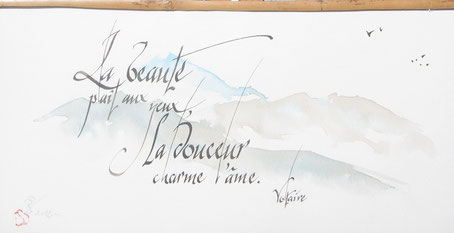 La Beauté
plait aux
yeux,
La Douceur
charme l'âme.
Voltaire